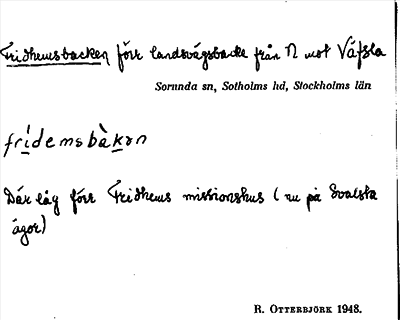 Fridhemsbacken förr landsvägsbacke från N mot Väfsla
Sorunda sn, Sotholms hd, Stockholms län
frídemsbàkən
Där låg förr Fridhems missionshus (nu på Svalsta
ägor)
R. Otterbjörk 1948.